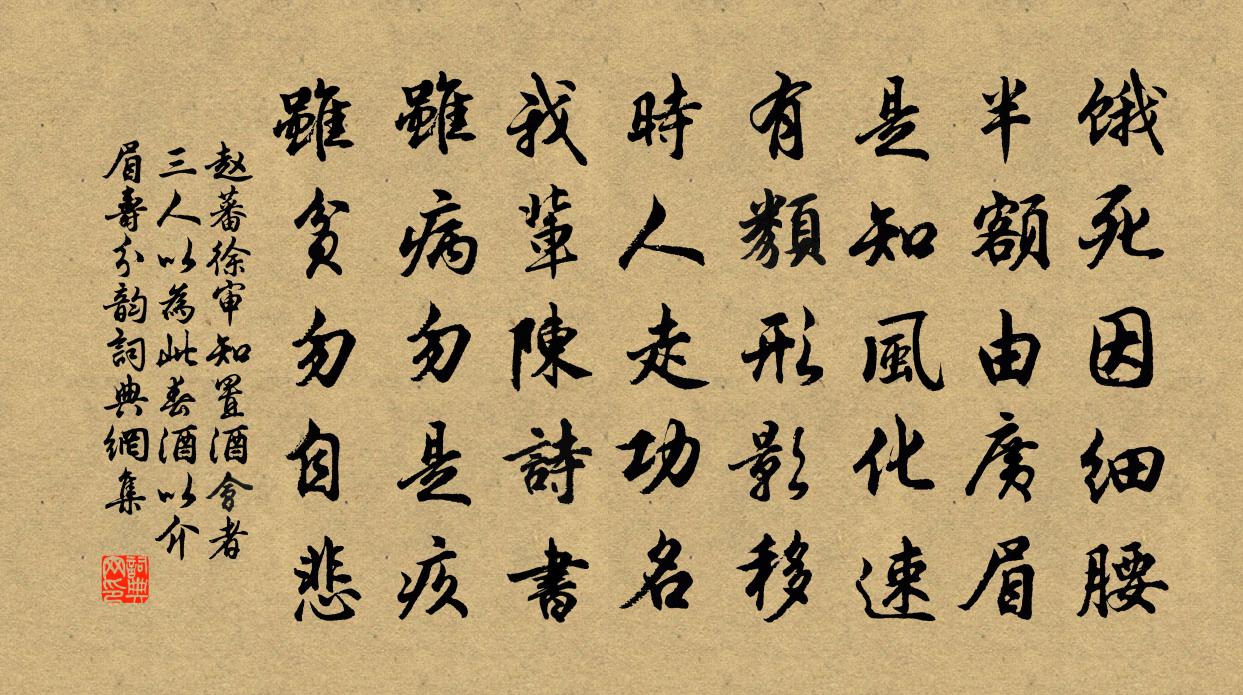 饿死因细腰
半额由广眉
是知風化速
有類形影移
時人走功名
我輩陳詩書
雖病勿是疚
雖貧勿自悲
赵蕃徐审知置酒會者
三人以為此春酒以介
眉壽分韵詞典網集
詞典網印